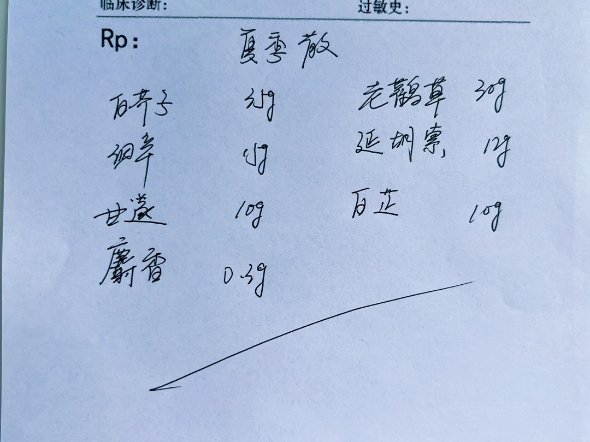 临床诊断: 过敏史:
Rp: 夏季散
白芥子 35g 老鹳草 30g
细辛 15g 延胡索 12g
甘遂 10g 白芷 10g
麝香 0.3g